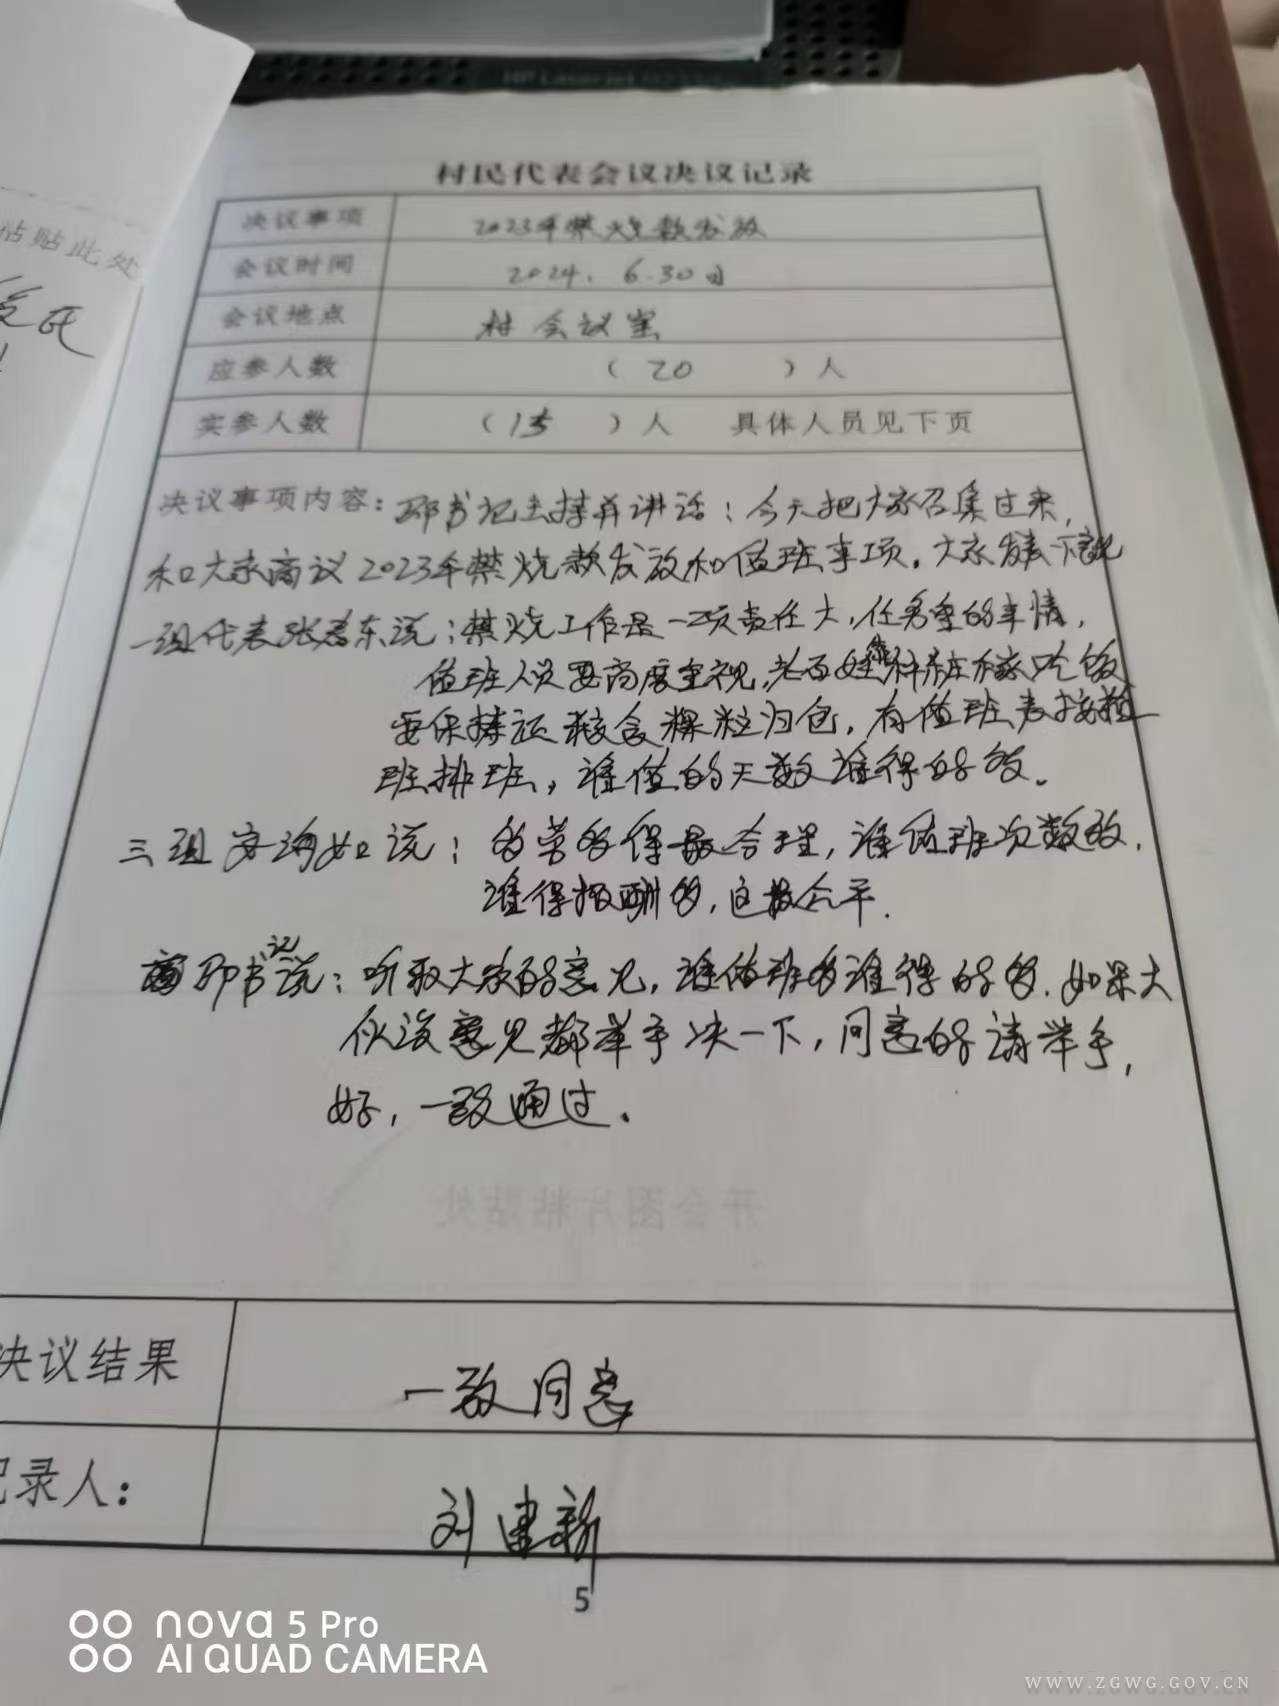 HP LaserJet
粘贴此处
村民代表会议决议记录
决议事项 2023年禁烧款发放
会议时间 2024.6.30日
会议地点 村会议室
应参人数 (20)人
实参人数 (15)人 具体人员见下页
决议事项内容:邵书记主持并讲话:今天把大家召集过来,
和大家商议2023年禁烧款发放和值班事项。大家发表下意见
一组代表张 东说:禁烧工作是一项责任大,任务重的事情,
值班人员要高度重视,老百姓 吃饭
要保持 颗粒归仓,有值班表按
班排班,谁值的天数谁得的多。
三组 海如说:多劳多得最合理,谁值班次数多,
谁得报酬多,这最公平.
邵书记说:听取大家的意见,谁值班多谁得的多.如果大
伙没意见都举手决一下,同意的请举手,
好,一致通过.
开会图片粘贴处
决议结果 一致同意
记录人: 刘建新
5
nova 5 Pro
AI QUAD CAMERA
WWW.ZGWG.GOV.CN